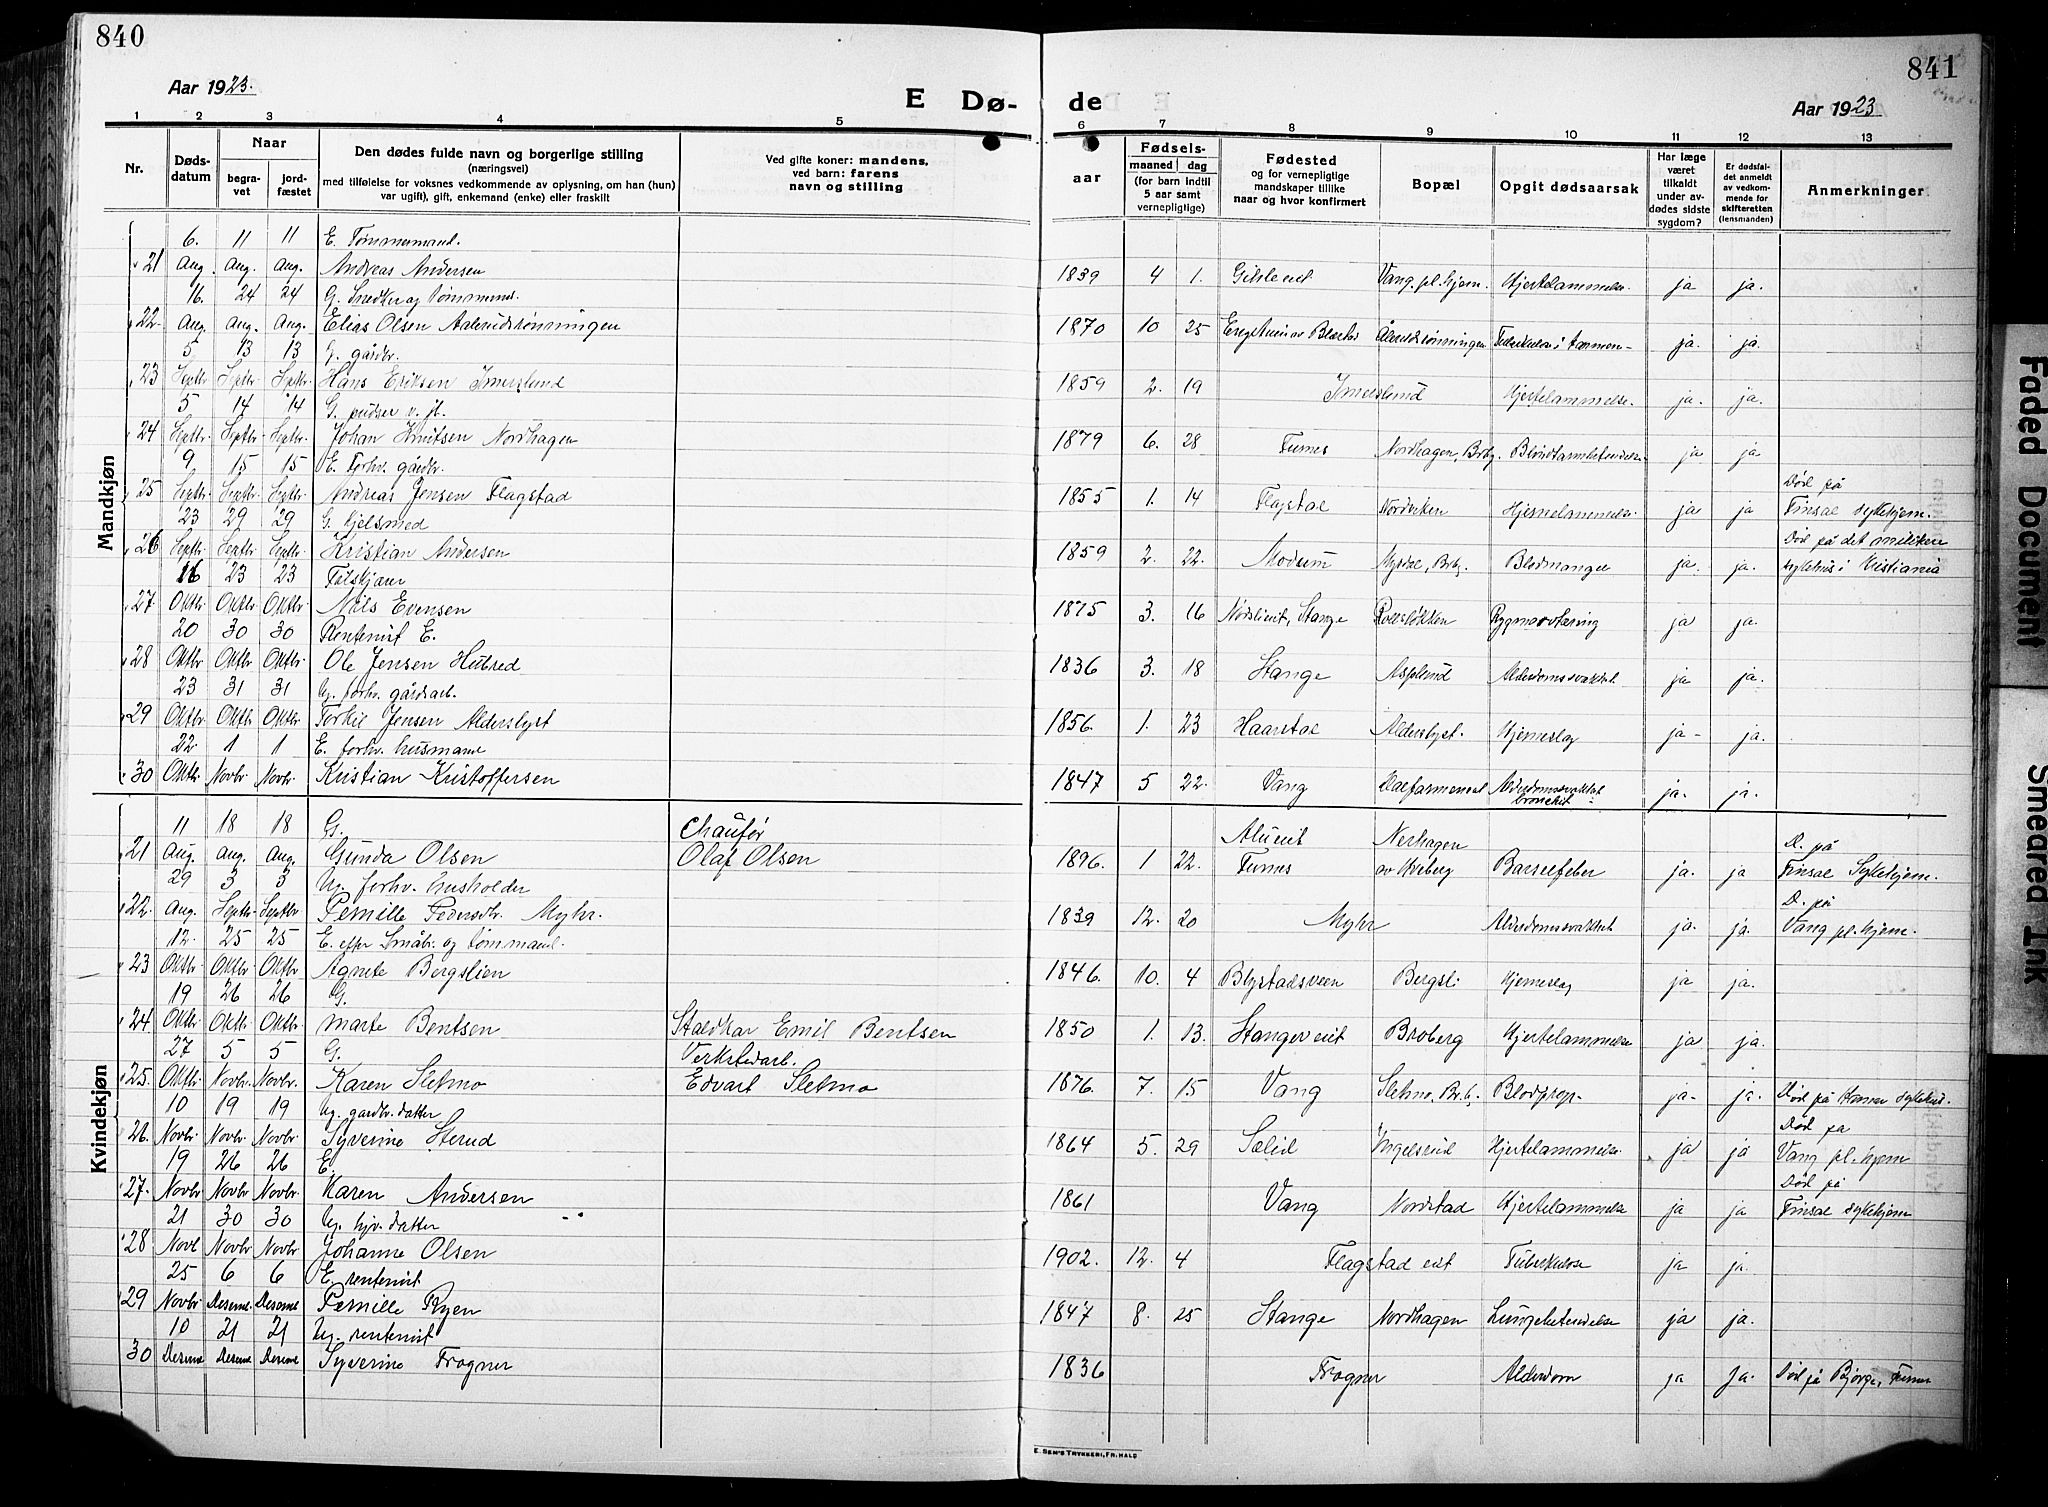 840
841
Aar 1923.
E Dø-
de
Aar 1923
1 2 3 4 5
6 7 8 9 10 11 12 13
Nr.
Døds-
datum
Naar
begra-
vet
jord-
fæstet
Den dødes fulde navn og borgerlige stilling
(næringsvei)
med tilføielse for voksnes vedkommende av oplysning, om han (hun)
var ugift), gift, enkemand (enke) eller fraskilt
Ved gifte koner: mandens,
ved barn: farens
navn og stilling
aar
Fødsels-
maaned dag
(for barn indtil
5 aar samt
vernepligtige)
Fødested
og for vernepligtige
mandskaper tillike
naar og hvor konfirmert
Bopæl
Opgit dødsaarsak
Har læge
været
tilkaldt
under av-
dødes sidste
sygdom?
Er dødsfal-
det anmeldt
av vedkom-
mende for
skifteretten
(lensmanden)
Anmerkninger
Mandkjøn
6. 11 11 E. Tømmermand.
21 Aug. Aug. Aug. Andreas Andersen 1839 4 1. Vang. pl.hjem. Hjertelammelse. ja ja.
16. 24 24 G. Snedker og tømmermd.
22. Aug. Aug. Aug. Elias Olsen Aalerudsrønningen 1870 10 25 Ålerudsrønningen ja. ja.
5 13 13 G. gårdbr.
23 Septbr Septbr. Septbr. Hans Eriksen Imerslund 1859 2. 19 Imerslund Hjertelammelse. ja. ja.
5 14 14 G. pudser v. jb.
24 Septbr. Septbr. Septbr. Johan Knutsen Nordhagen 1879 6. 28 Furnes Nordhagen, Brbg. Blindtarmbetendelse ja ja
9 15 15 E. Forhv. gårdbr.
25 Septbr. Septbr. Septbr. Andreas Jensen Flagstad 1855 1. 14 Flagstad Hjernelammelse ja ja Død på Finsal sykehjem.
23 29 29 G. Hjelsmed
26 Septbr Septbr. Septbr. Kristian Andersen 1859 2. 22. Modum Myrdal, Brbg. Blodmangel ja. ja. Død på det militære sykehus i Kristiania
16 23 23 Feltskjær
27. Oktbr Oktbr. Oktbr. Nils Evensen 1875 3. 16 Stange Rygmarvtæring ja ja.
20 30 30 Rentenist E.
28 Oktbr Oktbr Oktbr. Ole Jensen Hubred 1836 3. 18 Stange Asplund Alderdomssvakhet ja ja.
23 31 31 Ug. forhv. gårdsarb.
29 Oktbr. Oktbr. Oktbr Torkil Jensen Alderslyst 1856. 1. 23 Haarstad Alderslyst. Hjerneslag ja- ja.
22. 1 1 E. forhv. husmand
30 Oktbr. Novbr. Novbr. Kristian Kristoffersen 1847 5 22. Vang Alderdomssvakhet bronchit ja. ja.
Kvindekjøn
11 18 18 G. Chaufør
21 Aug. Aug. Aug. Gunda Olsen Olaf Olsen 1896. 1 22. Furnes Nerhagen av Hveberg Barselfeber ja. ja D. på Finsal Sykehjem.
29 3 3 Ug. forhv. husholder
22. Aug. Septbr. Septbr Pernille Pedersdtr. Myhr. 1839 12. 20 Myhr Alderdomssvakhet ja. ja. D. på Vang pl.hjem.
12. 25 25 E. efter Småbr. og tømmand.
23 Oktbr. Oktbr Oktbr Agnete Bergslien 1846. 10. 4 Blystadsveen Bergsli Hjerneslag ja ja.
19 26 26 G.
24 Oktbr. Oktbr. Oktbr. Marte Bentsen Staldkar Emil Bentsen 1850 1. 13. Stangereiet Broberg Hjertelammelse ja ja.
27 5 5 G. Verkstedarb.
25. Oktbr. Novbr. Novbr. Karen Sletmo Edvart Sletmo 1876. 7. 15 Vang Sletmo, Brbg. Blodprop. ja- ja. Død på Hamar sykehus.
10 19 19 Ug. gardbr. datter
26. Novbr. Novbr. Novbr. Syverine Sterud 1864 5. 29 Sælid Ingelsrud Hjertelammelse ja ja Død på Vang pl.hjem
19 26 26 E.
27. Novbr. Novbr. Novbr. Karen Andersen 1861 Vang Nordstad Hjertelammelse ja ja Død på Finsal sykehjem
21 30 30 Ug. hjv. datter
28 Novb Novbr. Novbr. Johanne Olsen 1902. 12. 4 Flagstad eiet Tuberkulose ja ja.
25 6 6 E. rentenist
29 Novbr. Desemd. Desemd Pernille Ryen 1847 8. 25 Stange Nordhagen Lungebetendelse ja ja.
10 21 21 Ug. rentenist
30 Desemd Desemd Desemd Syverine Frogner 1836 Frogner Alderdom ja Ja. Død på Bjørge, Furnes
E. SEM'S TRYKKERI, FR.HALD
Faded Document
Smeared Ink